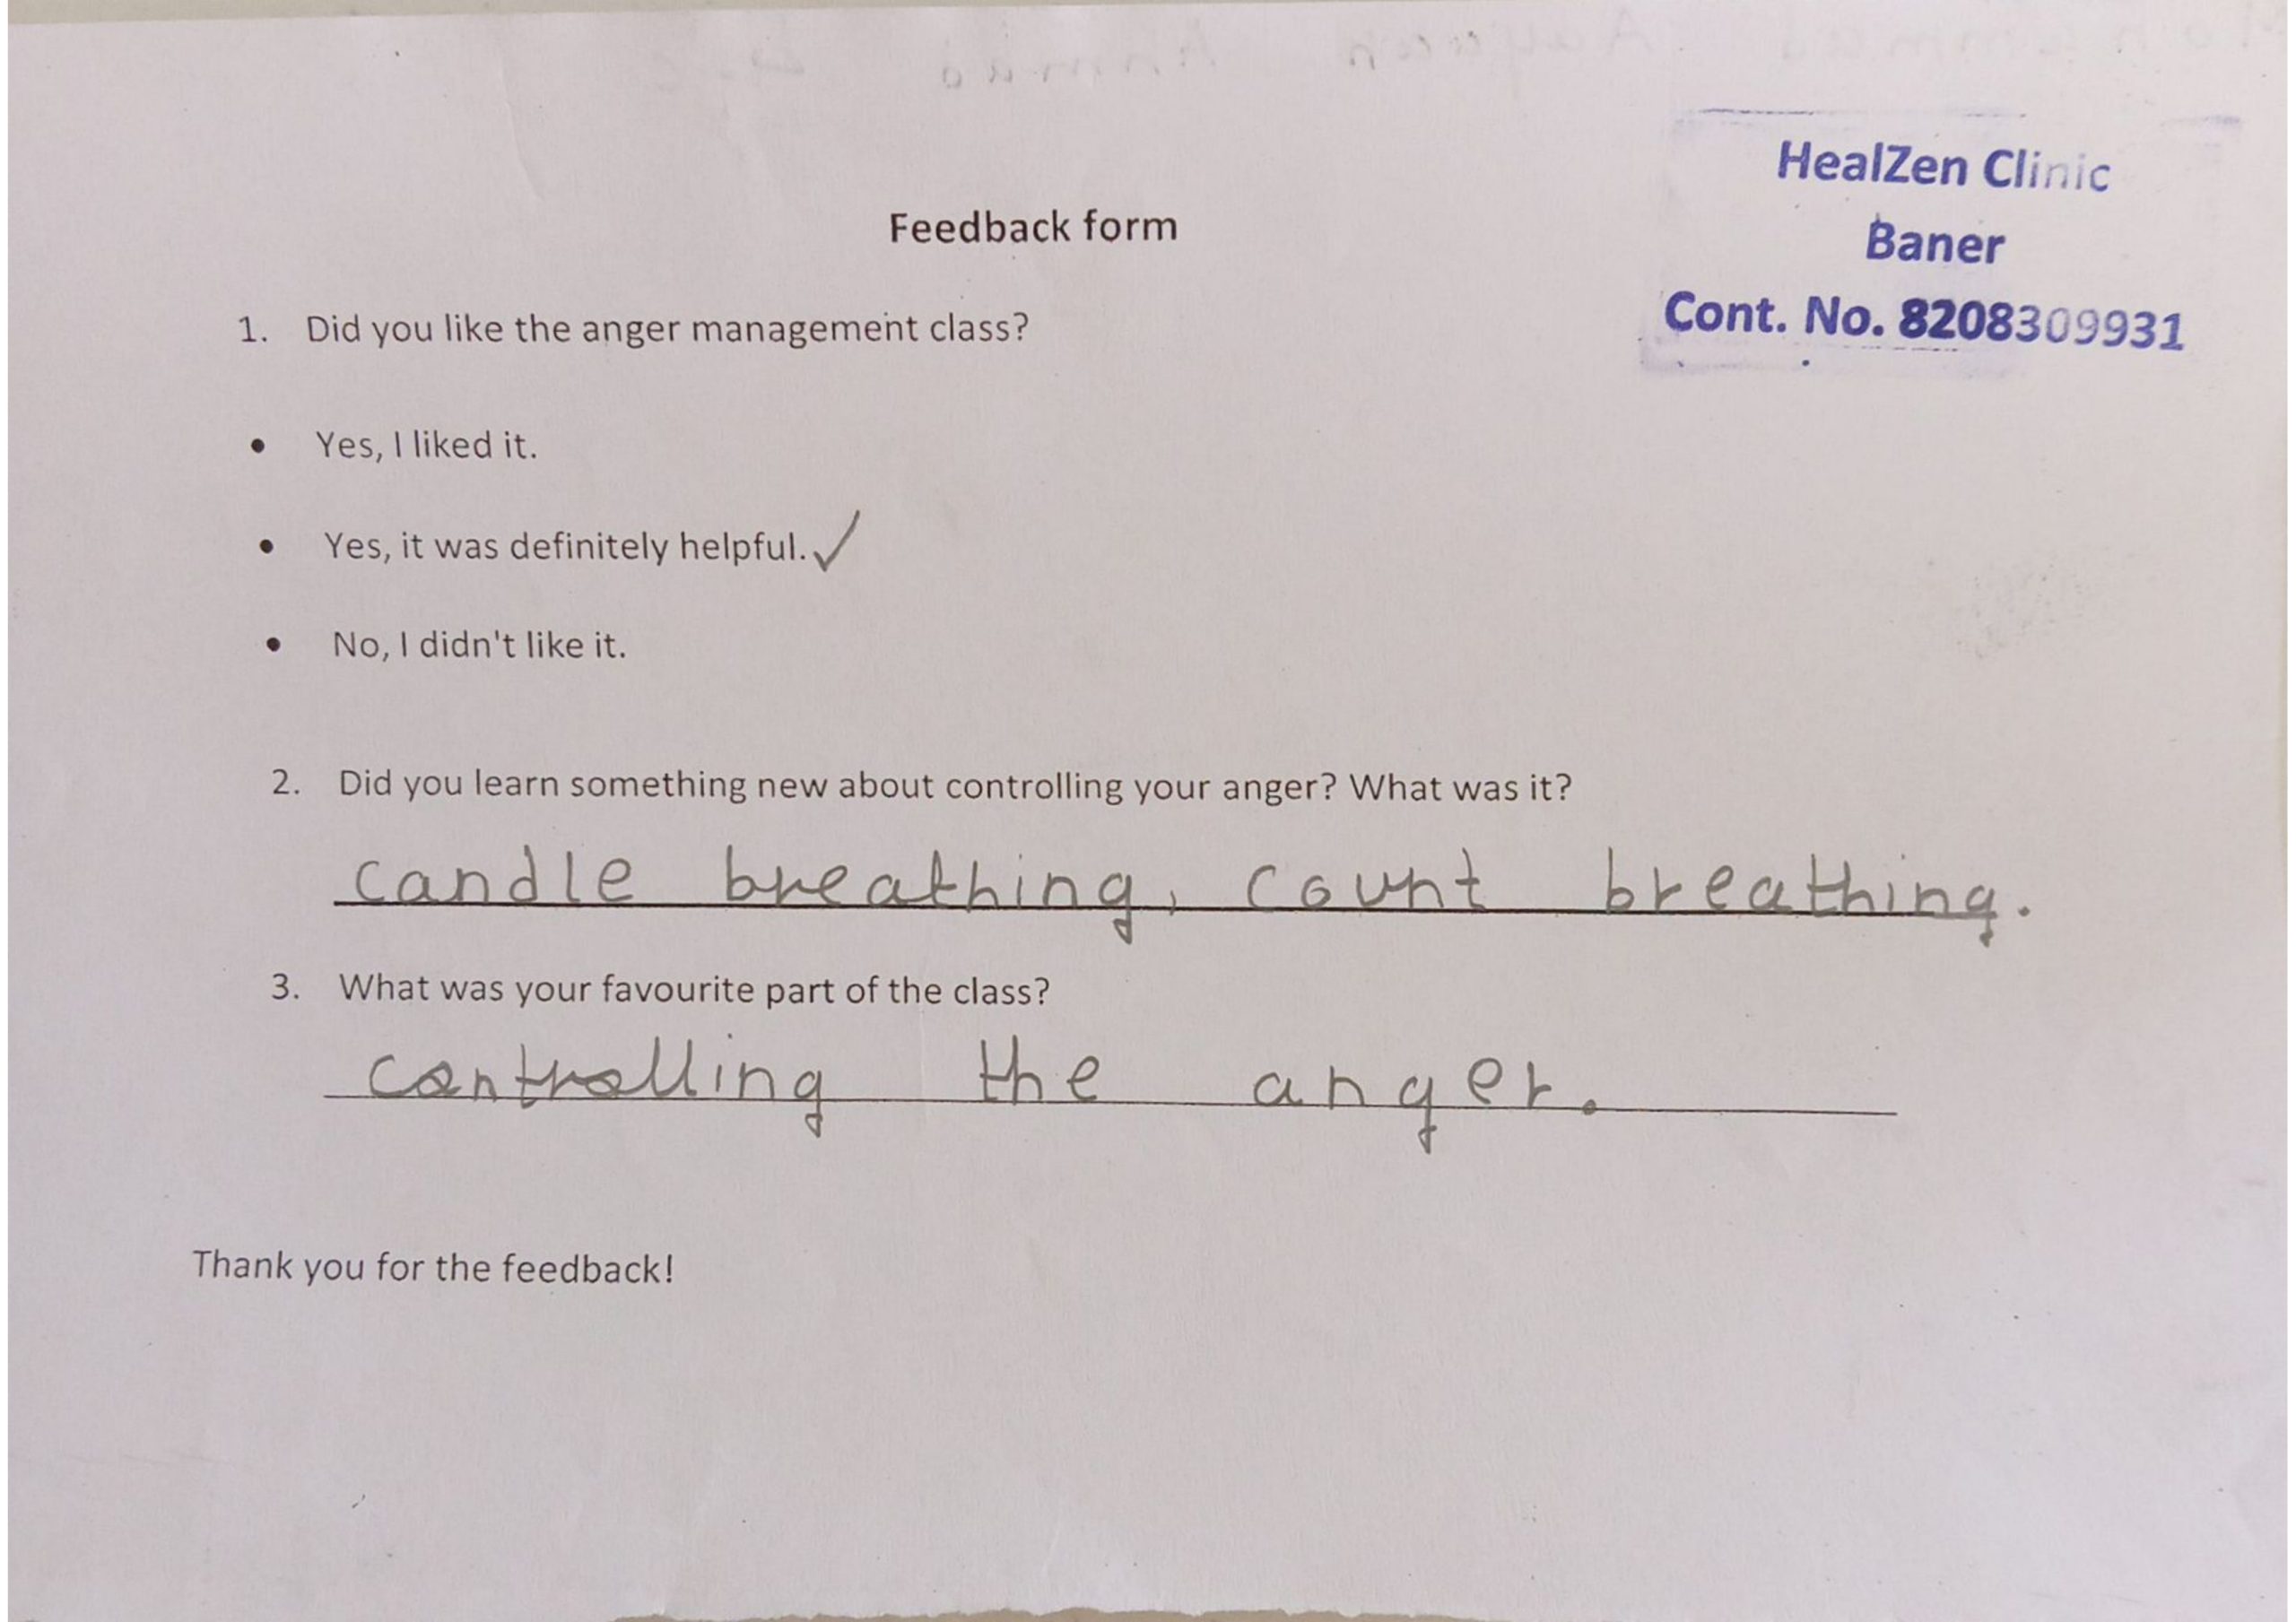 HealZen Clinic
Baner
Cont. No. 8208309931
Feedback form
1. Did you like the anger management class?
• Yes, I liked it.
• Yes, it was definitely helpful. ✓
• No, I didn't like it.
2. Did you learn something new about controlling your anger? What was it?
candle breathing, count breathing.
3. What was your favourite part of the class?
controlling the anger.
Thank you for the feedback!